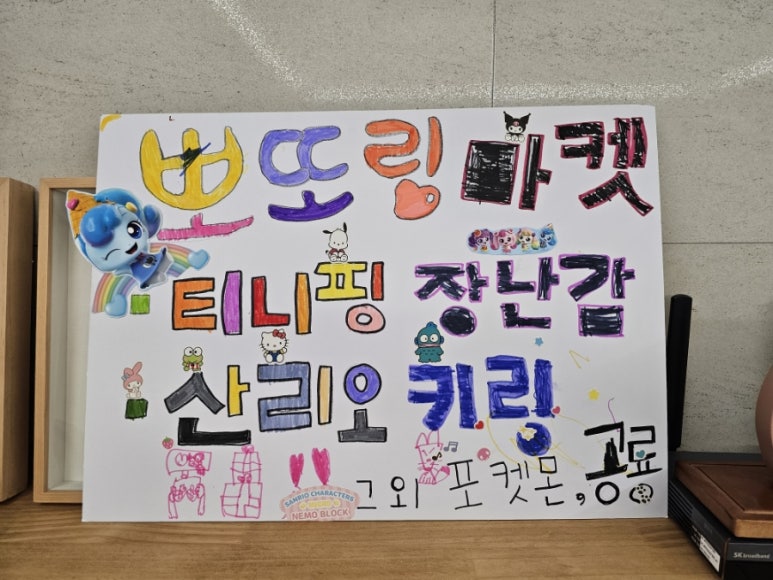 뽀또링 마켓
티니핑 장난감
산리오 키링
품절!!
SANRIO CHARACTERS
NEMO BLOCK
그 외 포켓몬, 공룡
SK broadband